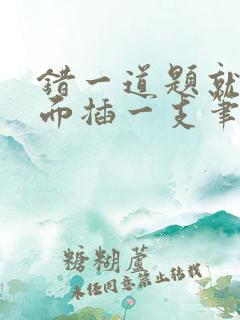 错一道题就
而插一支笔
糖糊蘆
未经同意禁止转载